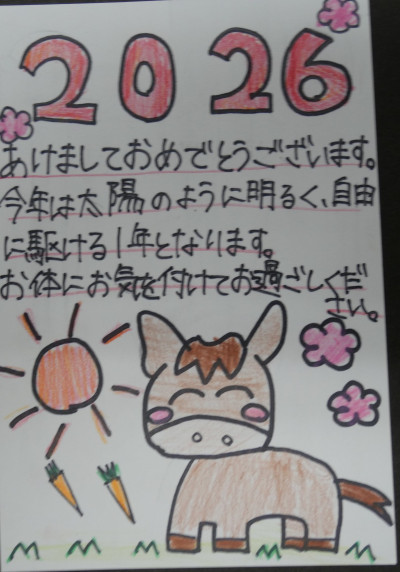 2026
あけましておめでとうございます。
今年は太陽のように明るく、自由
に駆ける1年となります。
お体にお気を付けてお過ごしくだ
さい。